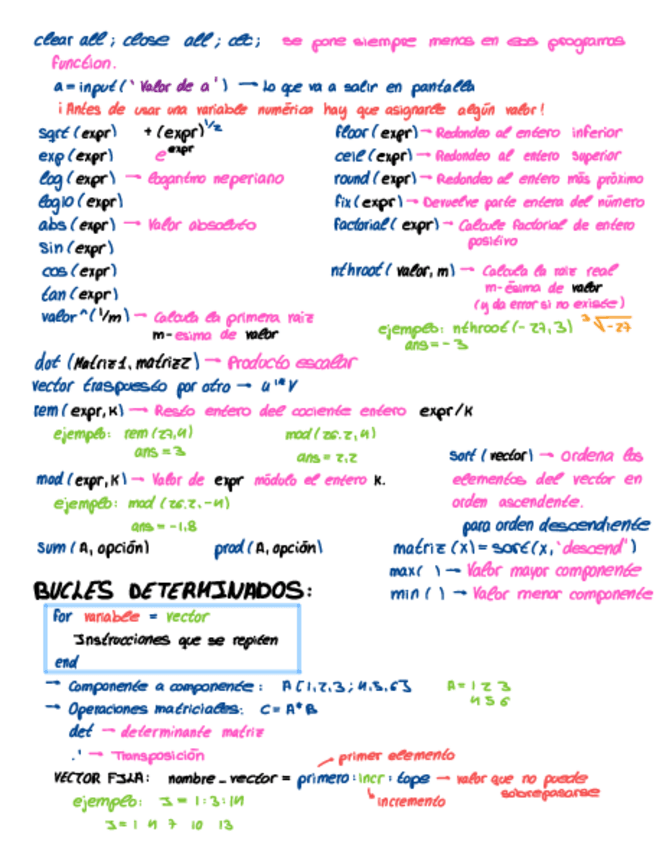 clear all; close all; clc; se pone siempre menos en los programas
function.
a=input('Valor de a') → Lo que va a salir en pantalla
¡Antes de usar una variable numérica hay que asignarle algún valor!
sqrt(expr) + (expr)^1/2
exp(expr) e^expr
log(expr) → logaritmo neperiano
log10(expr)
abs(expr) → Valor absoluto
Sin(expr)
cos(expr)
tan(expr)
valor^(1/m) → Calcula la primera raiz
m-esima de valor
floor(expr) → Redondeo al entero inferior
ceil(expr) → Redondeo al entero superior
round(expr) → Redondeo al entero más próximo
fix(expr) → Devuelve parte entera del número
factorial(expr) → Calcule factorial de entero
positivo
nthroot(valor, m) → Calcula la raiz real
m-ésima de valor
(y da error si no existe)
ejemplo: nthroot(-27,3) ³√-27
ans=-3
dot(Matriz1, matriz2) → Producto escalar
vector traspuesto por otro → u'*v
rem(expr,K) → Resto entero del cociente entero expr/K
ejemplo: rem(27,4)
ans=3
mod(26.2,4)
ans=2,2
mod(expr,K) → Valor de expr módulo el entero K.
ejemplo: mod(26.2,-4)
ans=-1,8
sort(vector) → ordena los
elementos del vector en
orden ascendente.
para orden descendiente
matriz(x)=sort(x,'descend')
max( ) → Valor mayor componente
min( ) → Valor menor componente
sum(A, opción) prod(A, opción)
BUCLES DETERMINADOS:
for variable = vector
Instrucciones que se repiten
end
→ Componente a componente: A[1,2,3;4,5,6] A=1 2 3
4 5 6
→ Operaciones matriciales: C=A*B
det → determinante matriz
.' → Transposición
primer elemento
VECTOR FILA: nombre_vector = primero:incr:tope → valor que no puede
sobrepasarse
incremento
ejemplo: I=1:3:14
I=1 4 7 10 13